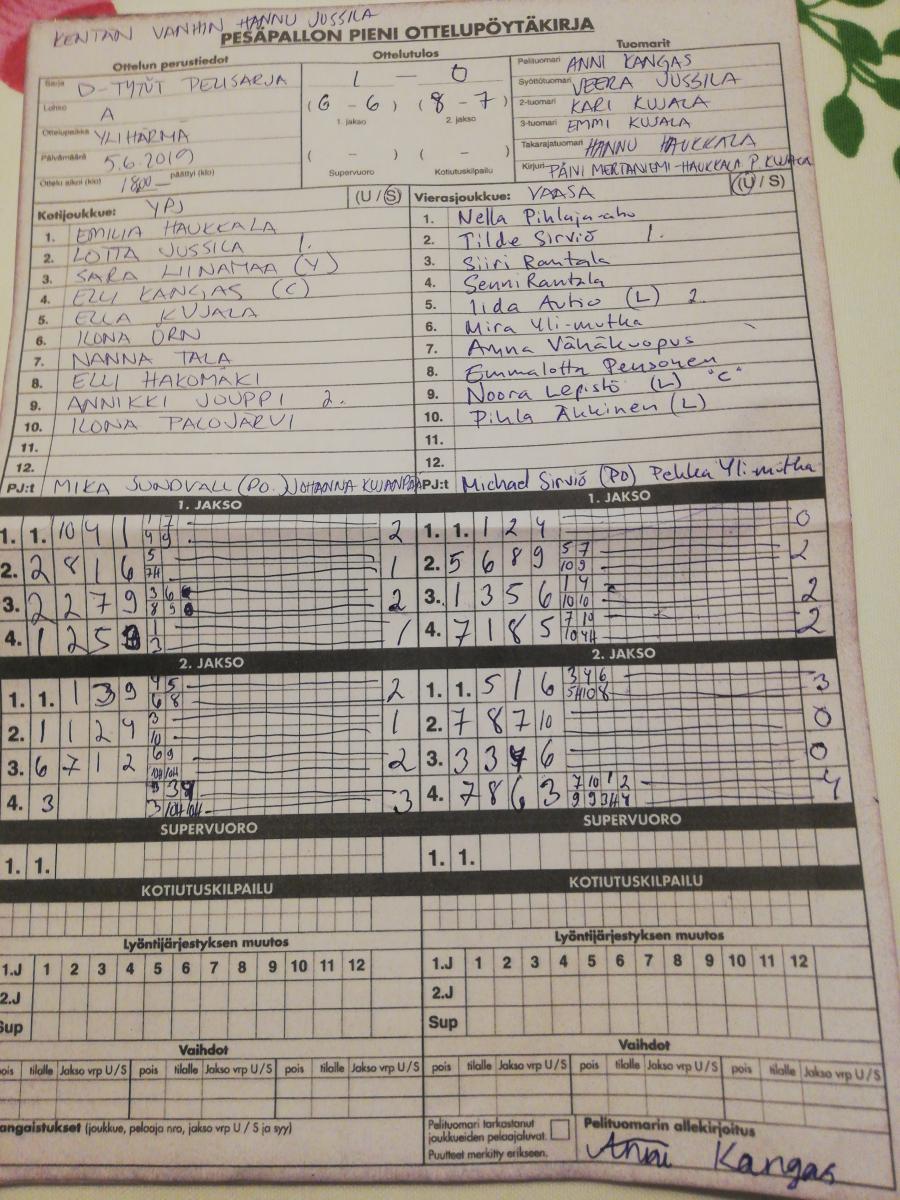 KENTÄN VANHIN HANNU JUSSILA
PESÄPALLON PIENI OTTELUPÖYTÄKIRJA
Ottelun perustiedot
Ottelutulos
Tuomarit
Sarja D-TYTÖT PELISARJA
1 - 0
Pelituomari ANNI KANGAS
Lohko A
(6 - 6) (8 - 7)
Syöttötuomari VEERA JUSSILA
1. jakso 2. jakso
2-tuomari KARI KUJALA
Ottelupaikka YLIHÄRMÄ
3-tuomari EMMI KUJALA
Päivämäärä 5.6.2019
( - ) ( - )
Takarajatuomari HANNU HAUKKALA
Ottelu alkoi (klo) 1800 päättyi (klo)
Supervuoro Kotiutuskilpailu
Kirjuri PÄIVI MERTANIEMI-HAUKKALA P. KUJALA
Kotijoukkue: YPJ (U / S)
Vierasjoukkue: VAASA (U / S)
1. EMILIA HAUKKALA
1. Nella Pihlaja-aho
2. LOTTA JUSSILA 1.
2. Tilde Sirviö 1.
3. SARA LIINAMAA (V)
3. Siiri Rantala
4. ELLI KANGAS (C)
4. Senni Rantala
5. ELLA KUJALA
5. Iida Autio (L) 2.
6. ILONA ÖRN
6. Mira Yli-mutka
7. NANNA TALA
7. Amna Vähäkuopus
8. ELLI HAKOMÄKI
8. Emmalotta Pensonen
9. ANNIKKI JOUPPI 2.
9. Noora Lepistö (L) "C"
10. ILONA PALOJÄRVI
10. Pihla Äkkinen (L)
11.
11.
12.
12.
PJ:t MIKA SUNDVALL (PO.) JOHANNA KUJANPÄÄ
PJ:t Michael Sirviö (PO) Pekka Yli-mutka
1. JAKSO
1. JAKSO
1. 1. 10 4 1 1 7 4 9 2
1. 1. 1 2 4 0
2. 2 8 1 6 5 7H 1
2. 5 6 8 9 5 7 10 9 2
3. 2 2 7 9 3 6 8 9 2
3. 1 3 5 6 1 4 10 10 2
4. 1 2 5 1 3 1
4. 7 1 8 5 7 10 10 4H 2
2. JAKSO
2. JAKSO
1. 1. 1 3 9 4 5 6 8 2
1. 1. 5 1 6 3 4 6 5H 10 8 3
2. 1 1 2 4 3 10 1
2. 7 8 7 10 0
3. 6 7 1 2 6 9 10H 10H 2
3. 3 3 6 0
4. 3 3 3 10H 10H 3
4. 7 8 6 3 7 10 1 2 9 9 3H 4 4
SUPERVUORO
SUPERVUORO
1. 1.
1. 1.
KOTIUTUSKILPAILU
KOTIUTUSKILPAILU
Lyöntijärjestyksen muutos
Lyöntijärjestyksen muutos
1.J 1 2 3 4 5 6 7 8 9 10 11 12
1.J 1 2 3 4 5 6 7 8 9 10 11 12
2.J
2.J
Sup
Sup
Vaihdot
Vaihdot
pois tilalle Jakso vrp U / S pois tilalle Jakso vrp U / S pois tilalle Jakso vrp U / S
pois tilalle Jakso vrp U / S pois tilalle Jakso vrp U / S pois tilalle Jakso vrp U / S
angaistukset (joukkue, pelaaja nro, jakso vrp U / S ja syy)
Pelituomari tarkastanut
joukkueiden pelaajaluvat.
Puutteet merkitty erikseen.
Pelituomarin allekirjoitus
Anni Kangas